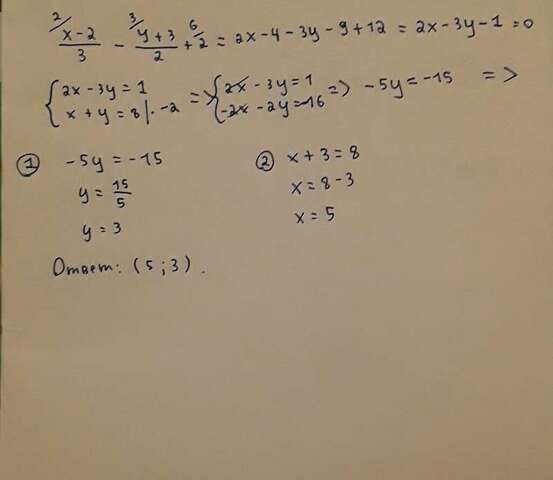 2/ x-2 / 3 - 3/ y+3 / 2 + 6/ 2 = 2x-4-3y-9+12 = 2x-3y-1=0
{ 2x-3y=1 x+y=8 |·-2 => { 2x-3y=1 -2x-2y=-16 => -5y=-15 =>
① -5y=-15
y = 15/5
y=3
② x+3=8
x=8-3
x=5
Ответ: (5;3).